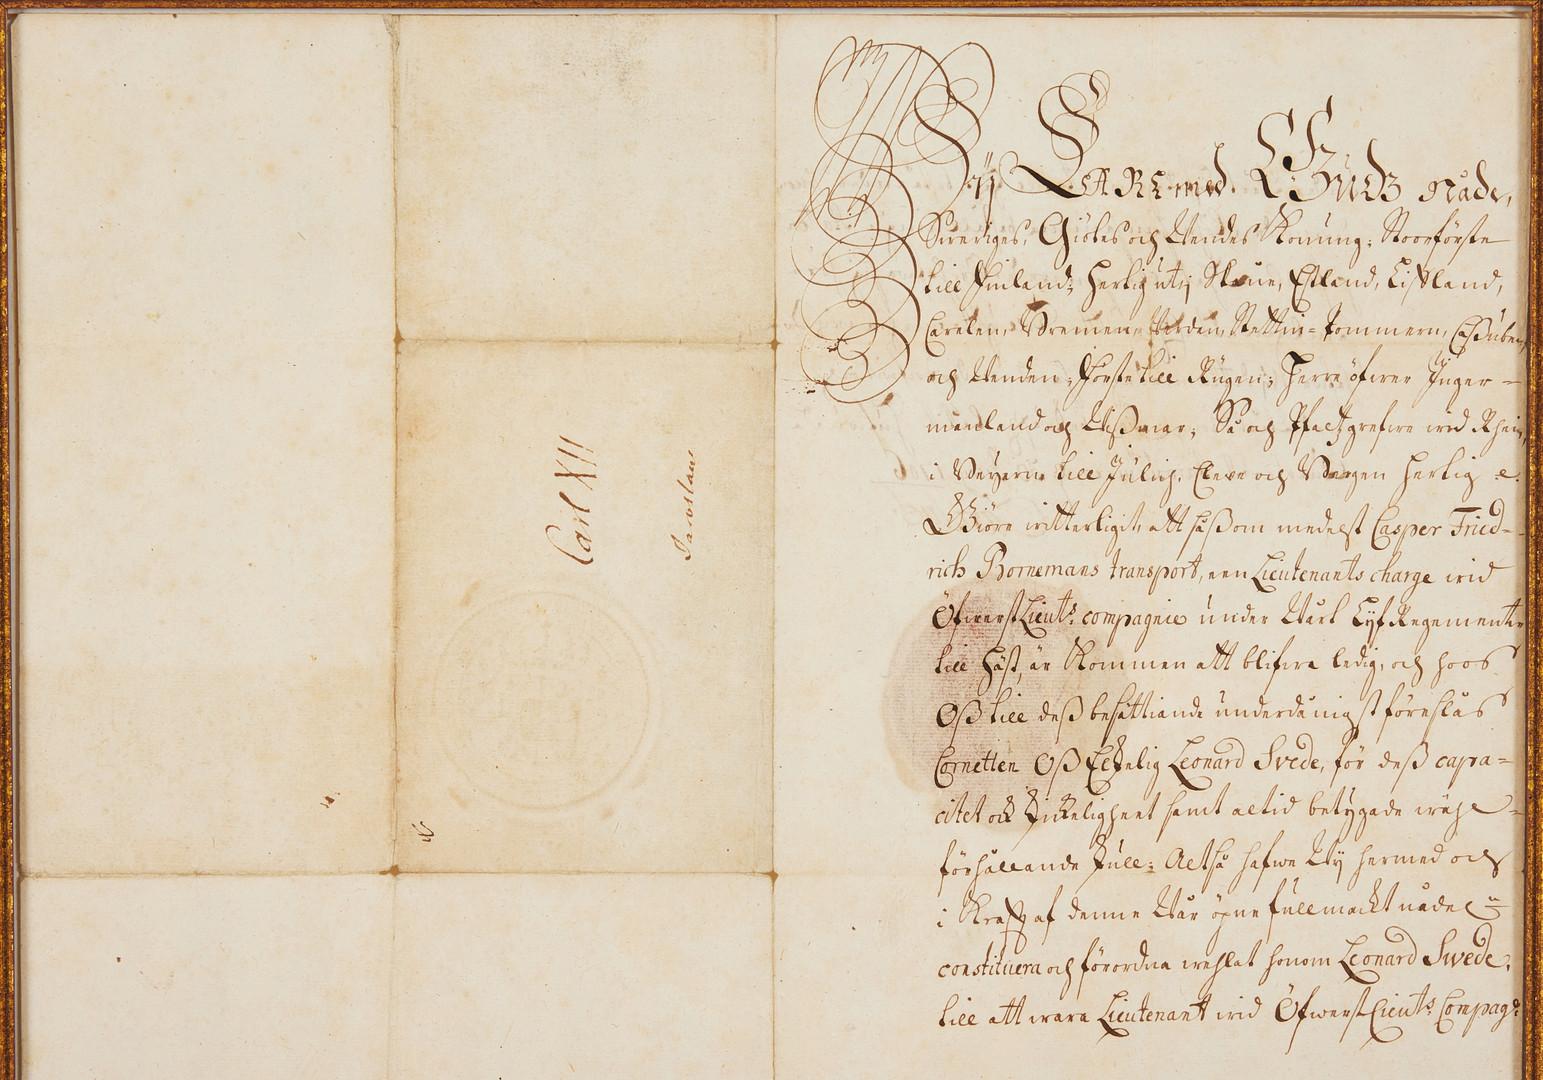 Carl XII
Jaroslau
Wij CARL med Gudz Nåde,
Sweriges, Giötes och Wendes Konung; Stoorförste
till Finland; Hertig utij Skåne, Estland, Lifland,
Carelen, Bremen, Verden, Stettin-Pommern, Caßuben
och Wenden; Förste till Rügen; Herre öfwer Inger-
manland och Wißmar; Så och Pfaltzgrefwe wid Rhein,
i Beyern till Jülich, Cleve och Bergen Hertig
Giöre witterligit, att såßom medelst Casper Fried-
rich Bornemans transport, een Lieutenants charge wid
ÖfwerstLieut:s compagnie under Wårt LijfRegemente
till Häst, är kommen att blifwa ledig, och hoos
Oß till deß besättiande underdånigst föreslås
Cornetten Oß Elskelig Leonard Svede, för deß capa=
citet och skickeligheet samt altid betygade
förhållande skull; Altså hafwe Wij hermed och
i Krafft af denne Wår öpne fullmackt nådel:n
constituera och förordna welat honom Leonard Swede,
till att wara Lieutenant wid ÖfwerstLieut:s Compag:e